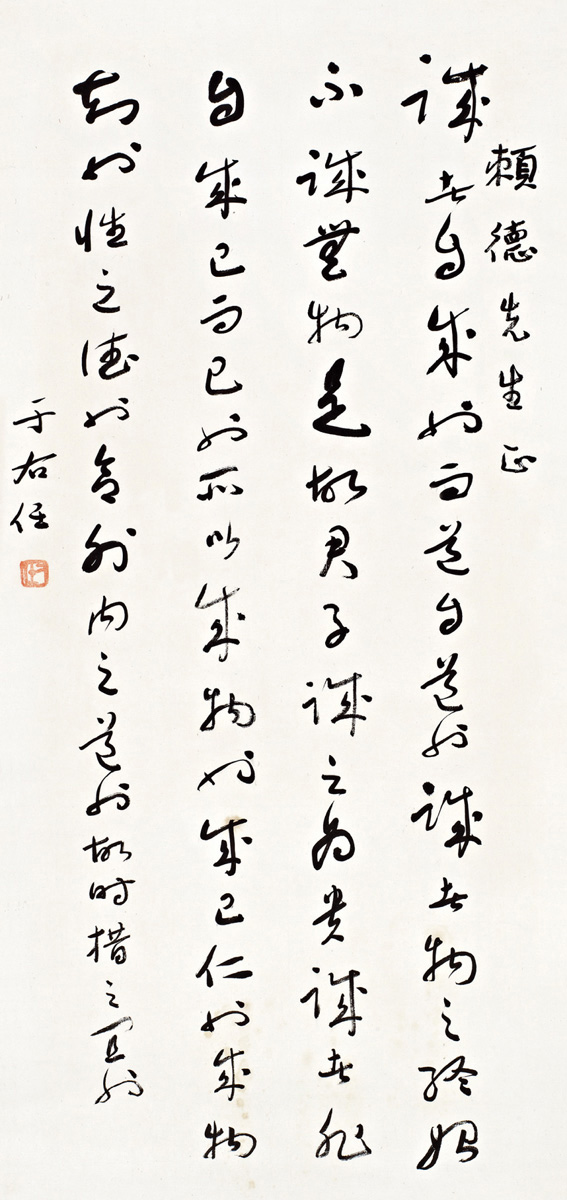 賴德先生正
誠者自成也而道自道也誠者物之終始
不誠無物是故君子誠之為貴誠者非
自成己而已也所以成物也成己仁也成物
知也性之德也合外內之道也故時措之宜也
于右任